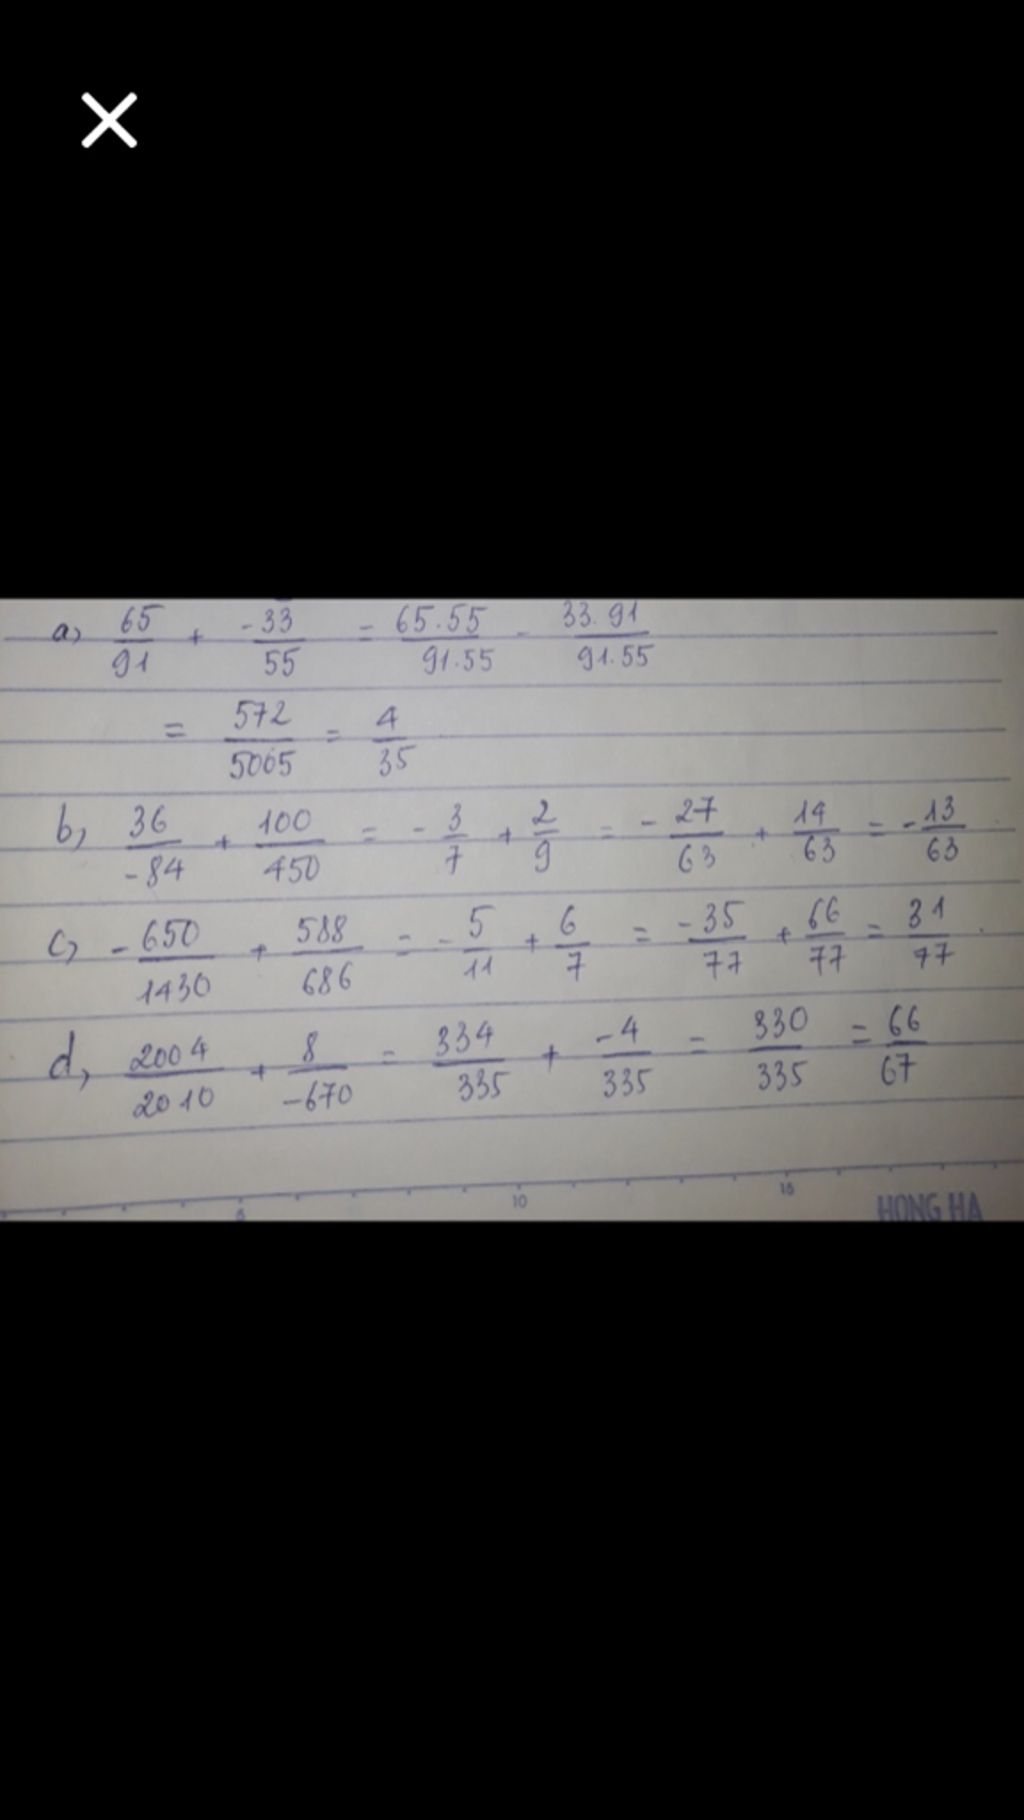 a) 65/91 + -33/55 = 65.55/91.55 - 33.91/91.55
= 572/5005 = 4/35
b) 36/-84 + 100/450 = - 3/7 + 2/9 = - 27/63 + 14/63 = - 13/63
c) - 650/1430 + 588/686 = - 5/11 + 6/7 = -35/77 + 66/77 = 31/77
d) 2004/2010 + 8/-670 = 334/335 + -4/335 = 330/335 = 66/67
10 15
HONG HA